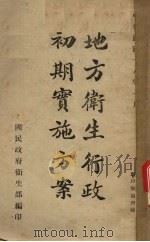 地方衛生行政
初期實施方案
國民政府衛生部編印